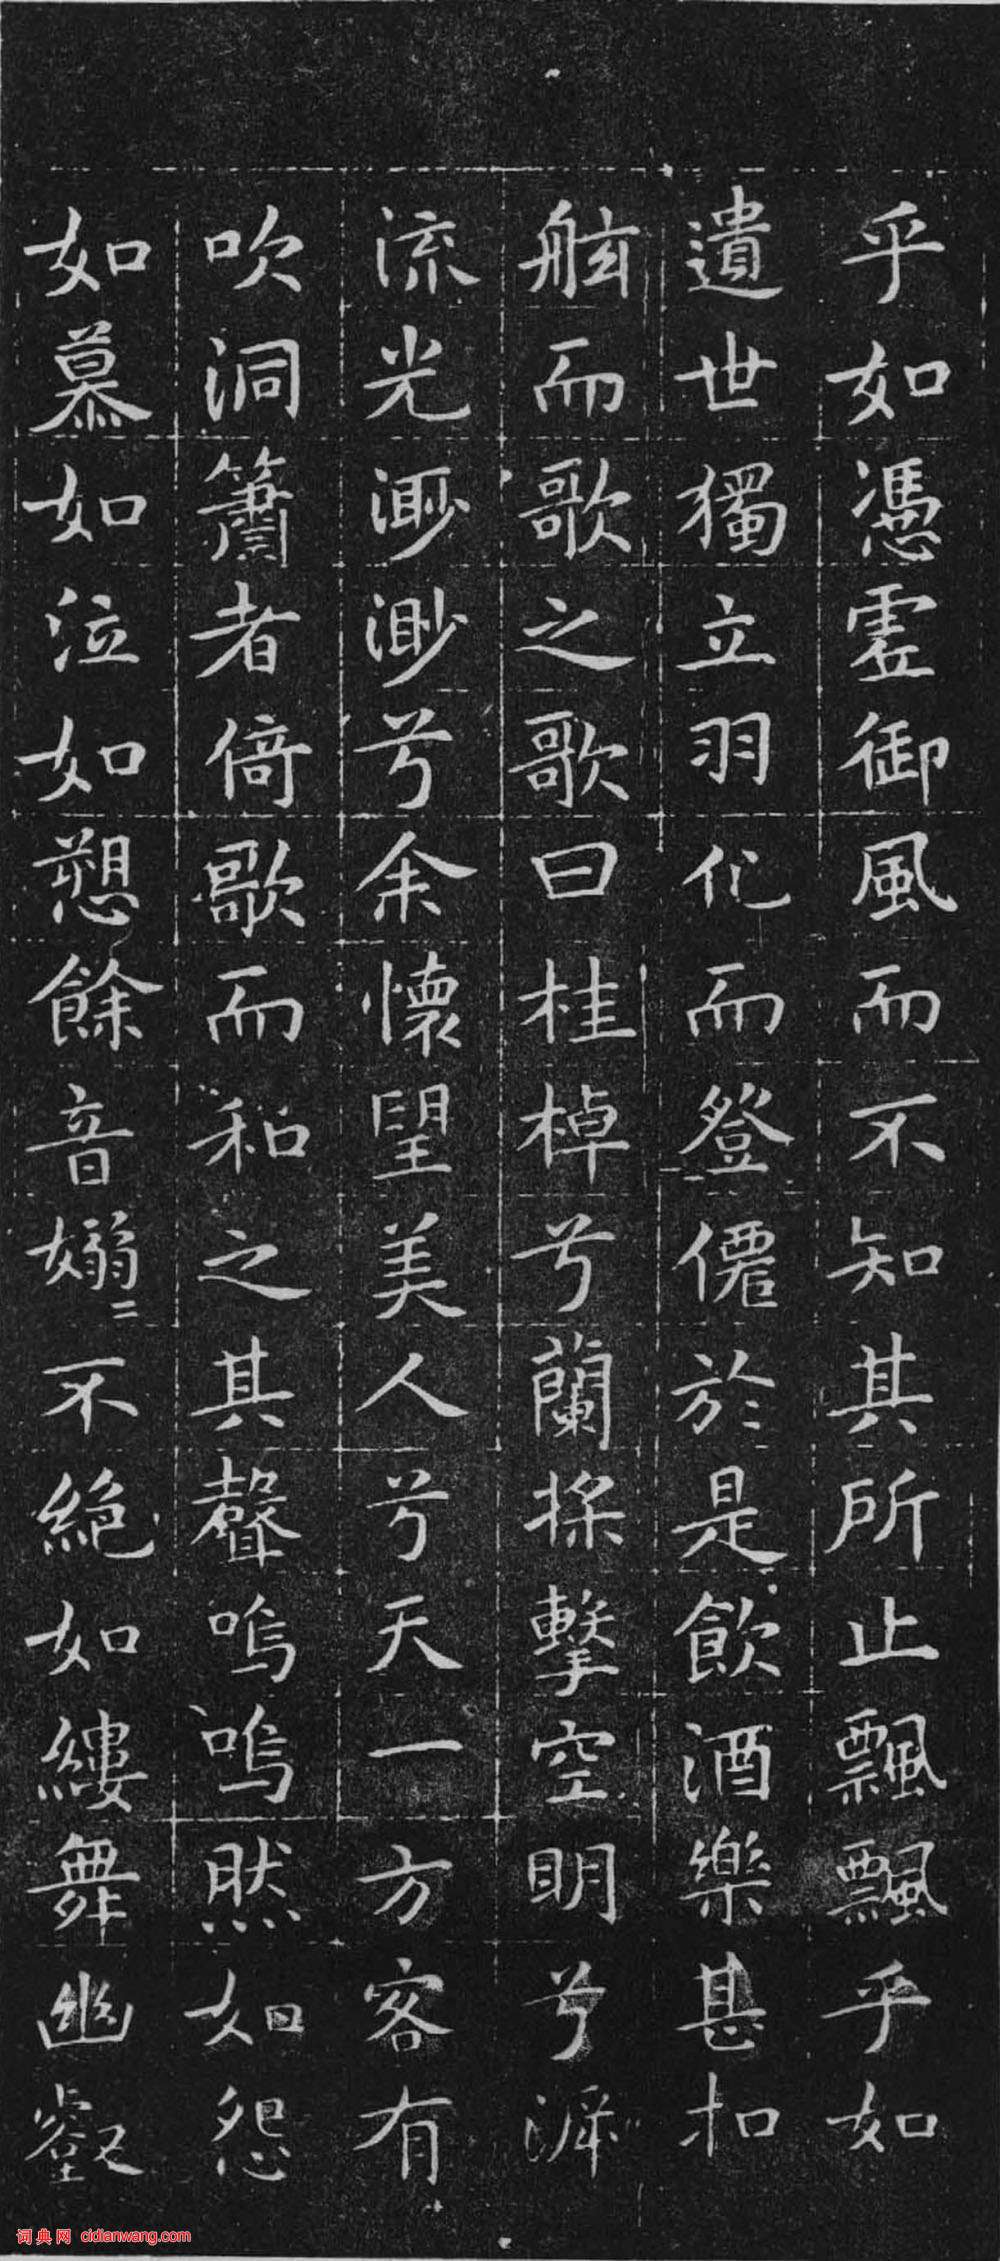 乎如憑虛御風而不知其所止飄飄乎如
遺世獨立羽化而登僊於是飲酒樂甚扣
舷而歌之歌曰桂棹兮蘭槳擊空明兮泝
流光渺渺兮余懷望美人兮天一方客有
吹洞簫者倚歌而和之其聲嗚嗚然如怨
如慕如泣如愬餘音嫋二不絕如縷舞幽壑
词典网 cidianwang.com